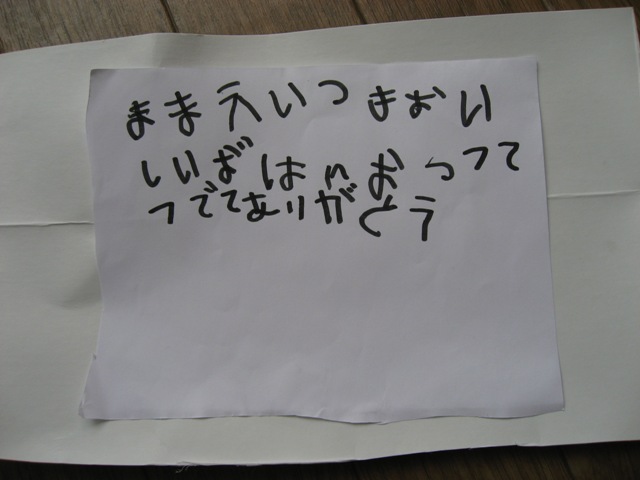 ままえいつ まおい
しいばはんおっって
つでてありがとう